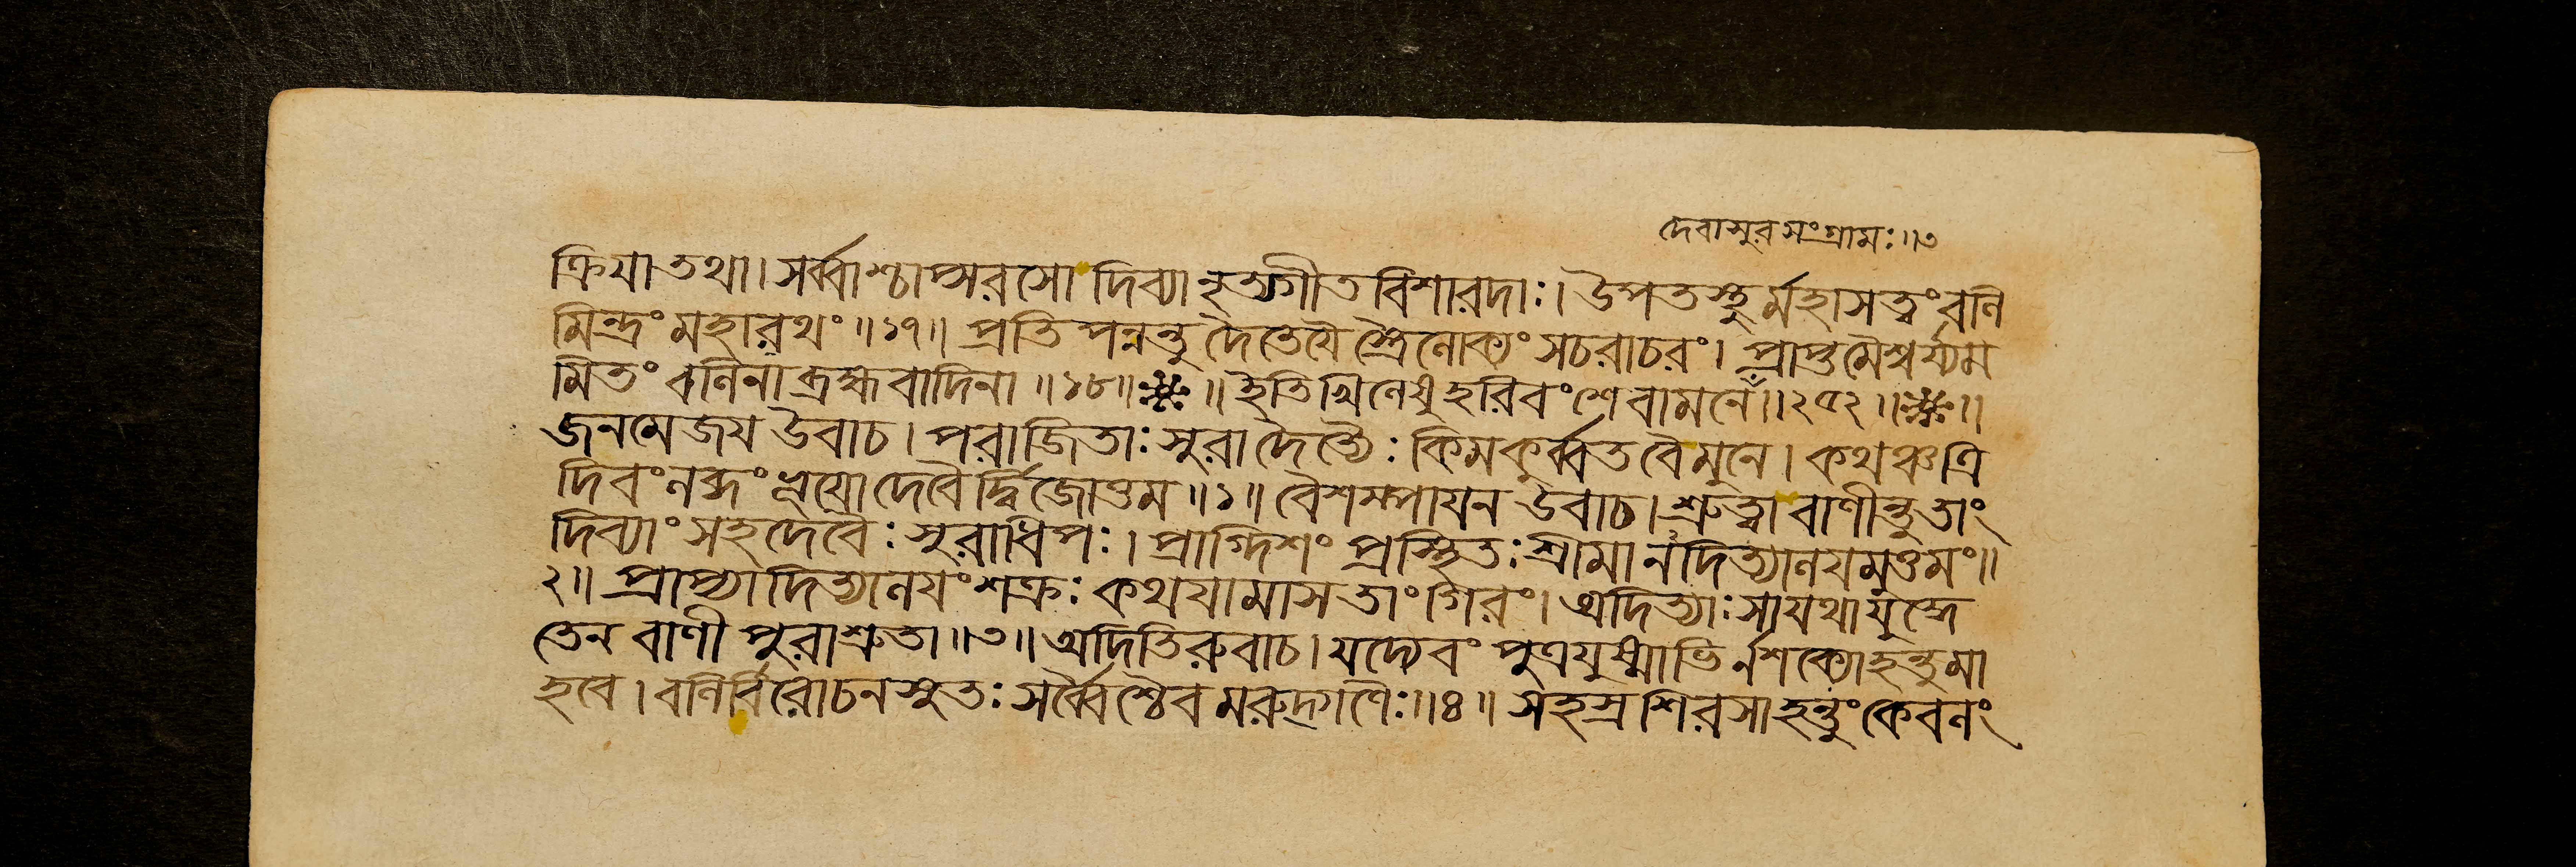 দেবাসুরসংগ্রামঃ॥৩
ক্রিযাতথা। সর্ব্বাশ্চাপ্সরসো দিব্যানৃত্যগীতবিশারদাঃ। উপতস্থুর্মহাসত্ত্বংবলি
মিন্দ্রং মহারথং॥১৭॥ প্রতিপন্নন্তু দৈতেযৈস্ত্রৈলোক্যং সচরাচরং। প্রাপ্তুমৈশ্বর্য্যম
মিতং বলিনা ব্রহ্মবাদিনা॥১৮॥❋॥ ইতিখিলেষুহরিবংশেবামনে॥২৫২॥❋॥
জনমেজয উবাচ। পরাজিতাঃ সুরাদৈত্যৈঃ কিমকুর্ব্বতবৈমুনে। কথঞ্চত্রি
দিবংলব্ধং ভূযোদেবৈর্দ্বিজোত্তম॥১॥ বৈশম্পাযন উবাচ। শ্রুত্বাবাণীন্তুতাং
দিব্যাং সহদেবৈঃ সুরাধিপঃ। প্রাগ্দিশং প্রস্থিতঃ শ্রীমানদিত্যালযমুত্তমং॥
২॥ প্রাপ্যাদিত্যালযংশক্রঃ কথযামাসতাংগিরং। অদিত্যাঃ সাযথাযুদ্ধে
তেন বাণী পুরাশ্রুতা॥৩॥ অদিতিরুবাচ। যদ্যেবং পুত্রযুষ্মাভির্নশক্যোহন্তুমা
হবে। বলির্বিরোচনসুতঃ সর্ব্বৈশ্চৈবমরুদ্গণৈঃ॥৪॥ সহস্রশিরসাহন্তুংকেবলং